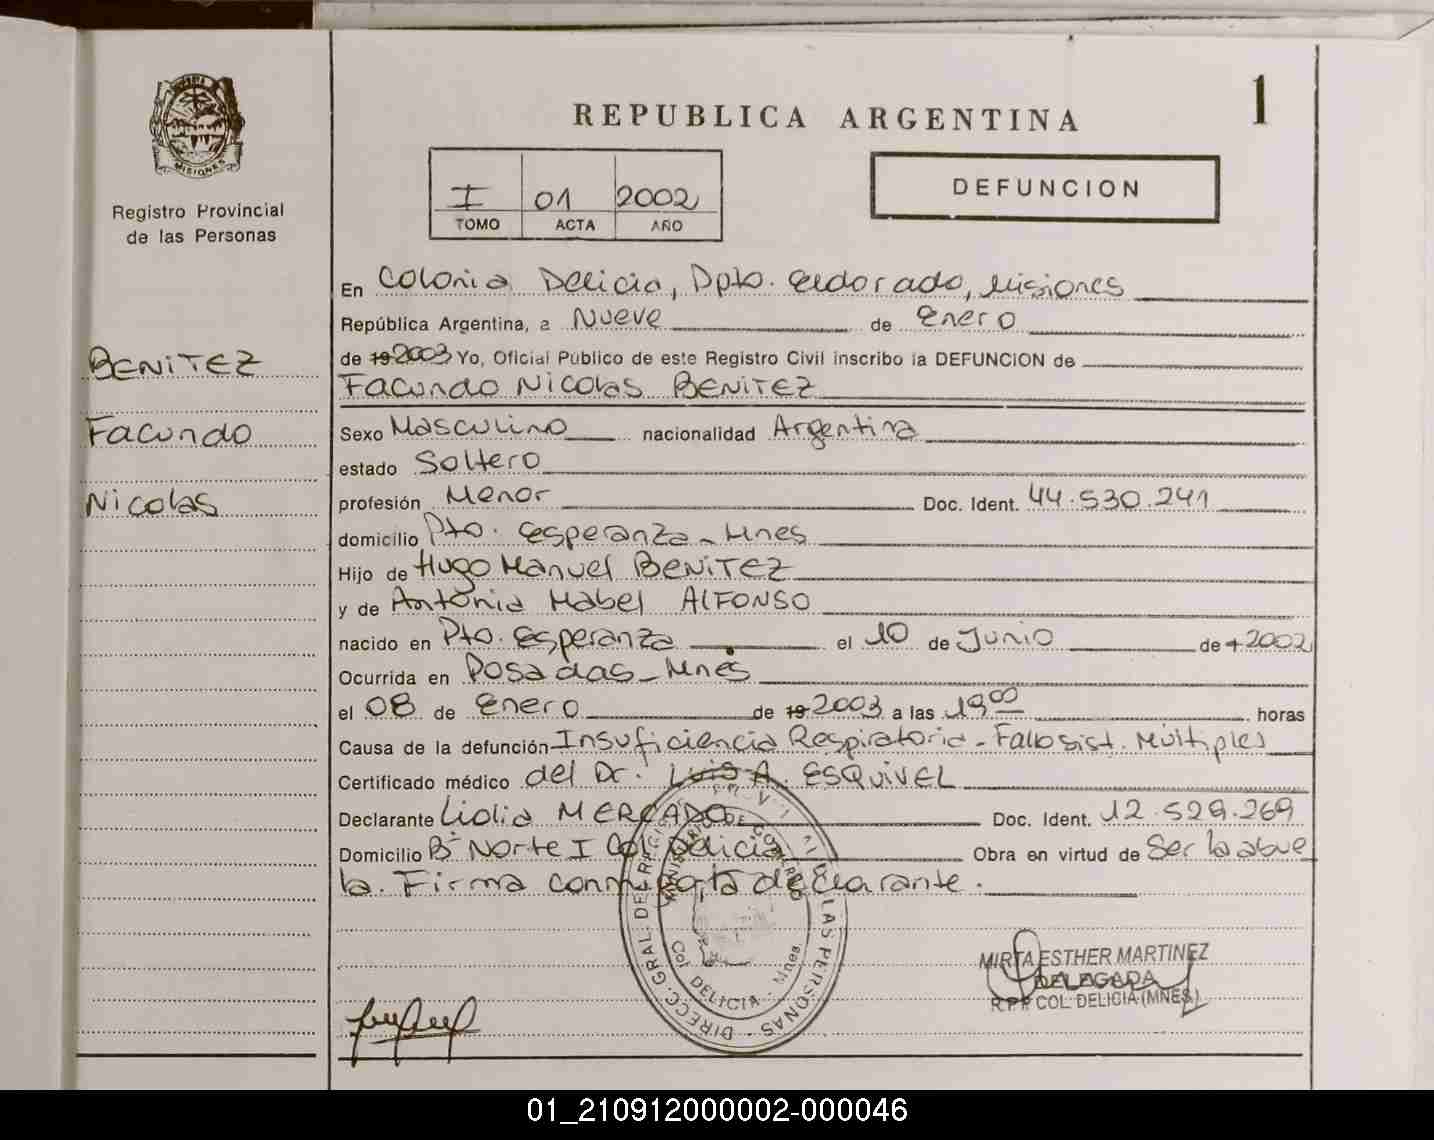 REPUBLICA ARGENTINA
1
MISIONES
Registro Provincial
de las Personas
I 01 2002
TOMO ACTA AÑO
DEFUNCION
En Colonia Delicia, Dpto. Eldorado, Misiones
República Argentina, a Nueve de Enero
de 19 2003 Yo, Oficial Público de este Registro Civil inscribo la DEFUNCION de
Facundo Nicolas BENITEZ
BENITEZ
Facundo
Nicolas
Sexo Masculino nacionalidad Argentina
estado Soltero
profesión Menor Doc. Ident. 44.530.241
domicilio Pto. Esperanza - Mnes
Hijo de Hugo Manuel BENITEZ
y de Antonia Mabel ALFONSO
nacido en Pto. Esperanza el 10 de Junio de 1 2002
Ocurrida en Posadas - Mnes
el 08 de Enero de 19 2003 a las 19 00 horas
Causa de la defunción Insuficiencia Respiratoria - Fallo sist. Múltiples
Certificado médico del Dr. Luis A. ESQUIVEL
Declarante Lidia MERCADO Doc. Ident. 12.529.269
Domicilio Bº Norte I Col. Delicia Obra en virtud de Ser la abue
la. Firma conmigo, la declarante.
MINISTERIO DE GOBIERNO
Col. DELICIA - Mnes.
MIRTA ESTHER MARTINEZ
DELEGADA
R.P.P. COL. DELICIA (MNES.)
01_210912000002-000046